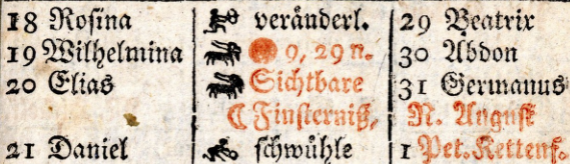 18 Rosina veränderl. 29 Beatrix
19 Wilhelmina 9, 29 n. 30 Abdon
20 Elias Sichtbare 31 Germanus
☾ Finsterniß, N. August
21 Daniel schwühle 1 Pet. Kettenf.